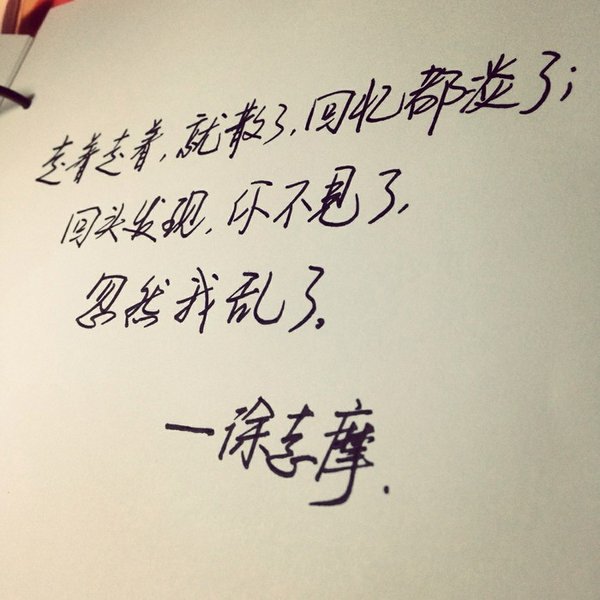 走着走着,就散了,回忆都淡了;
回头发现,你不见了,
忽然我乱了。
—徐志摩.